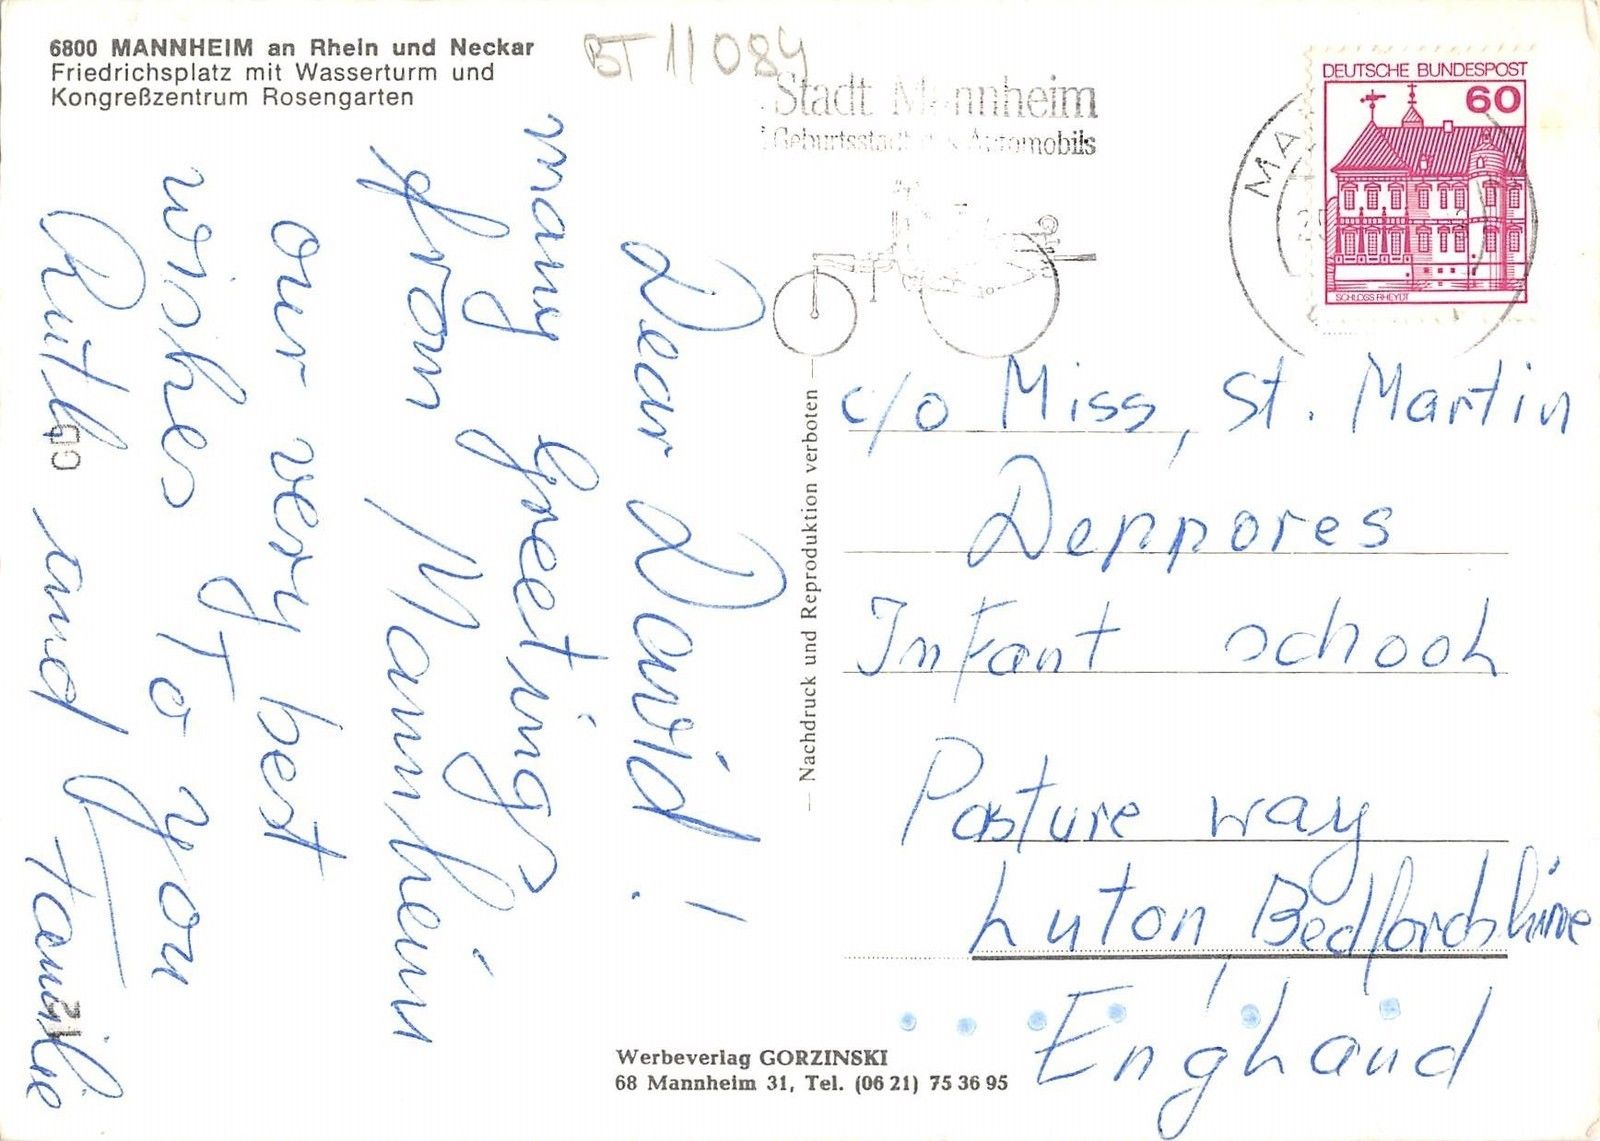 6800 MANNHEIM an Rhein und Neckar
Friedrichsplatz mit Wasserturm und
Kongreßzentrum Rosengarten
BT 11084
Stadt Mannheim
Geburtsstadt des Automobils
DEUTSCHE BUNDESPOST
60
SCHLOSS RHEYDT
MA
Dear David!
many Greetings
from Mannheim
our very best
wishes To you
Ruth und Familie
Nachdruck und Reproduktion verboten
c/o Miss, St. Martin
Deppores
Infant school
Pasture way
Luton, Bedfordshire
England
Werbeverlag GORZINSKI
68 Mannheim 31, Tel. (06 21) 75 36 95